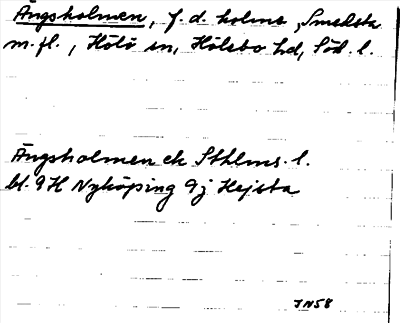 Ängsholmen, f.d. holme, Smedsta
m.fl., Hölö sn, Hölebo hd, Söd. l.
Ängsholmen ek Sthlms. l.
bl. 9H Nyköping 9j Hejsta
JN58